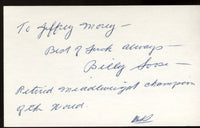 To Jeffrey Morey -
Best of luck always -
Billy Soose -
Retired middleweight champion
of the World.